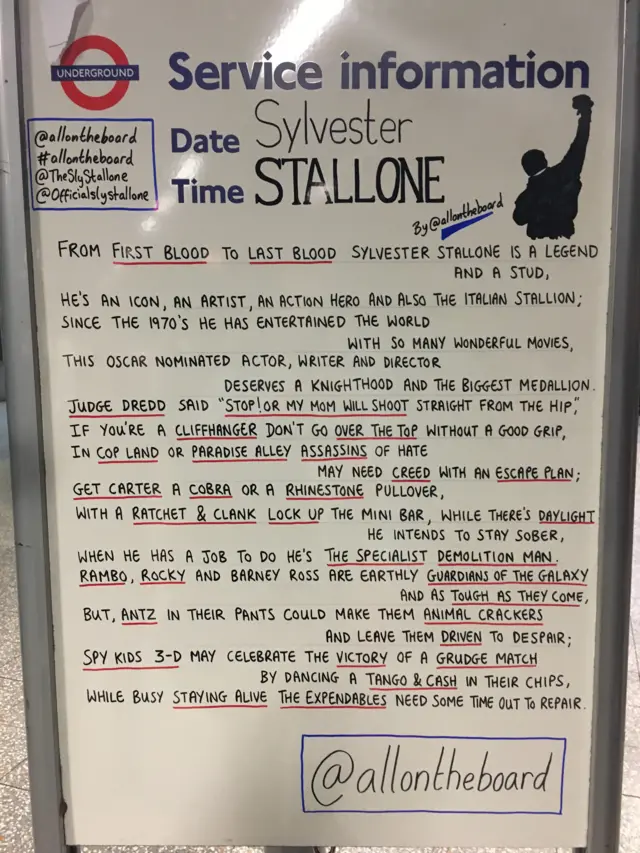 UNDERGROUND
Service information
@allontheboard
#allontheboard
@TheSlyStallone
@Officialslystallone
Date Sylvester
Time STALLONE
By @allontheboard
FROM FIRST BLOOD TO LAST BLOOD SYLVESTER STALLONE IS A LEGEND
AND A STUD,
HE'S AN ICON, AN ARTIST, AN ACTION HERO AND ALSO THE ITALIAN STALLION;
SINCE THE 1970'S HE HAS ENTERTAINED THE WORLD
WITH SO MANY WONDERFUL MOVIES,
THIS OSCAR NOMINATED ACTOR, WRITER AND DIRECTOR
DESERVES A KNIGHTHOOD AND THE BIGGEST MEDALLION.
JUDGE DREDD SAID "STOP! OR MY MOM WILL SHOOT STRAIGHT FROM THE HIP,"
IF YOU'RE A CLIFFHANGER DON'T GO OVER THE TOP WITHOUT A GOOD GRIP,
IN COP LAND OR PARADISE ALLEY ASSASSINS OF HATE
MAY NEED CREED WITH AN ESCAPE PLAN;
GET CARTER A COBRA OR A RHINESTONE PULLOVER,
WITH A RATCHET & CLANK LOCK UP THE MINI BAR, WHILE THERE'S DAYLIGHT
HE INTENDS TO STAY SOBER,
WHEN HE HAS A JOB TO DO HE'S THE SPECIALIST DEMOLITION MAN.
RAMBO, ROCKY AND BARNEY ROSS ARE EARTHLY GUARDIANS OF THE GALAXY
AND AS TOUGH AS THEY COME,
BUT, ANTZ IN THEIR PANTS COULD MAKE THEM ANIMAL CRACKERS
AND LEAVE THEM DRIVEN TO DESPAIR;
SPY KIDS 3-D MAY CELEBRATE THE VICTORY OF A GRUDGE MATCH
BY DANCING A TANGO & CASH IN THEIR CHIPS,
WHILE BUSY STAYING ALIVE THE EXPENDABLES NEED SOME TIME OUT TO REPAIR.
@allontheboard